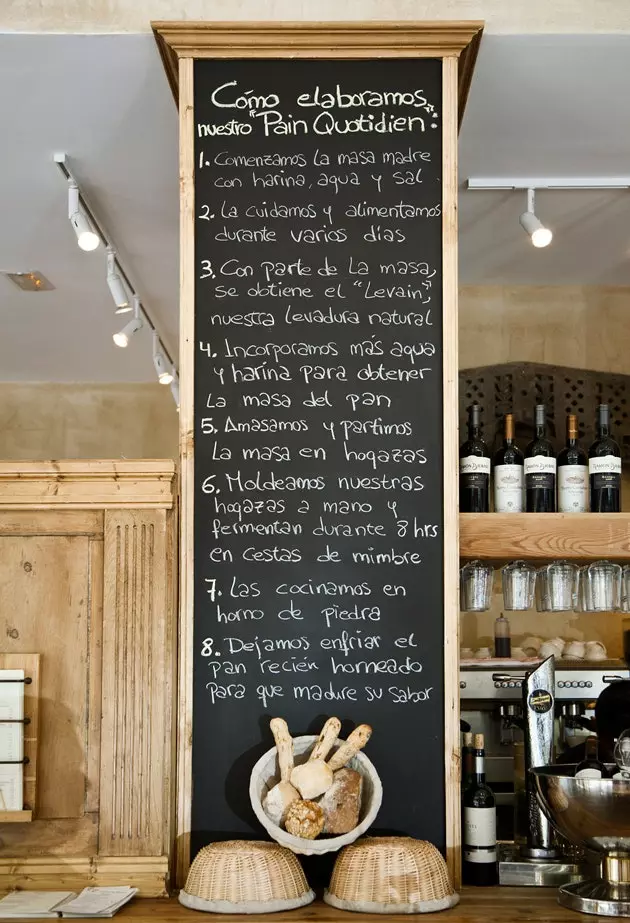 Cómo elaboramos
nuestro "Pain Quotidien":
1. Comenzamos la masa madre
con harina, agua y sal.
2. La cuidamos y alimentamos
durante varios días
3. Con parte de la masa,
se obtiene el "Levain",
nuestra levadura natural
4. Incorporamos más agua
y harina para obtener
la masa del pan
5. Amasamos y partimos
la masa en hogazas
6. Moldeamos nuestras
hogazas a mano y
fermentan durante 8 hrs
en cestas de mimbre
7. Las cocinamos en
horno de piedra
8. Dejamos enfriar el
pan recién horneado
para que madure su sabor